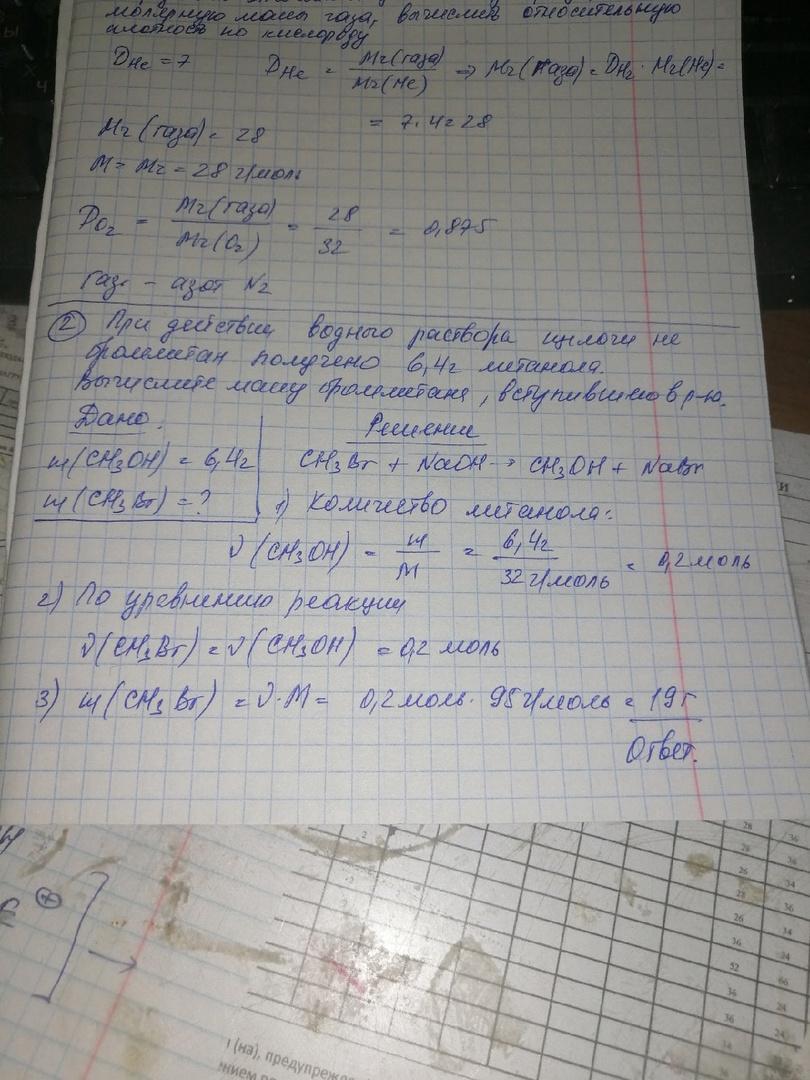 молярную массу газа, вычислить относительную
плотность по кислороду
DHe = 7 DHe = Mr(газа) / Mr(He) => Mr(газа) = DH2 · Mr(He) =
= 7·4 = 28
Mr(газа) = 28
M = Mr = 28 г/моль
DO2 = Mr(газа) / Mr(O2) = 28 / 32 = 0,875
Газ - азот N2
2 При действии водного раствора щелочи не
бромметан получено 6,4г метанола.
Вычислите массу бромметана, вступившего в р-ю.
Дано. Решение
m(CH3OH) = 6,4г CH3Br + NaOH → CH3OH + NaBr
m(CH3Br) = ? 1) Количество метанола:
ν(CH3OH) = m / M = 6,4г / 32 г/моль = 0,2 моль
2) По уравнению реакции
ν(CH3Br) = ν(CH3OH) = 0,2 моль
3) m(CH3Br) = ν·M = 0,2 моль · 95 г/моль = 19 г
Ответ.
(на), предупрежд